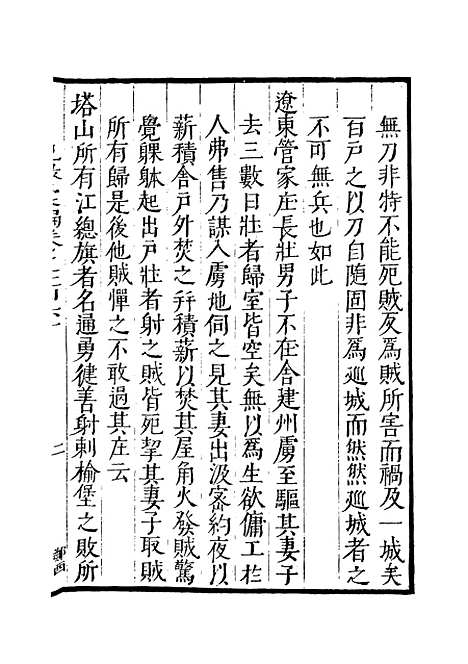 無刀非特不能死賊反爲賊所害而禍及一城矣
百戶之以刀自隨固非爲廵城而然然廵城者之
不可無兵也如此
遼東管家庄長壯男子不在舍建州虜至驅其妻子
去三數日壯者歸室皆空矣無以爲生欲傭工扵
人弗售乃謀入虜地伺之見其妻出汲密約夜以
薪積舍戶外焚之幷積薪以焚其屋角火發賊驚
覺躶躰起出戶壯者射之賊皆死挈其妻子取賊
所有歸是後他賊憚之不敢過其庄云
塔山所有江總旗者名通勇徤善射剌榆堡之敗所